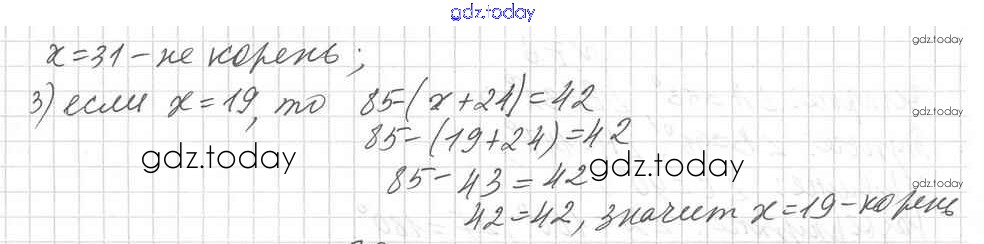 gdz.today
x=31 - не корень;
gdz.today
3) если x=19, то 85-(x+24)=42
gdz.today
85-(19+24)=42
gdz.today
gdz.today
85-43=42
gdz.today
42=42, значит x=19 - корень